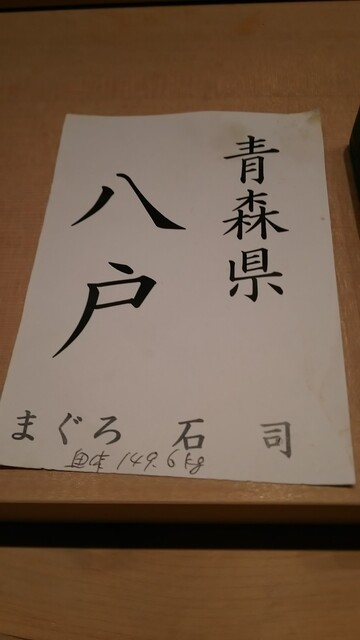 青森県
八戸
まぐろ 石司
149.6kg